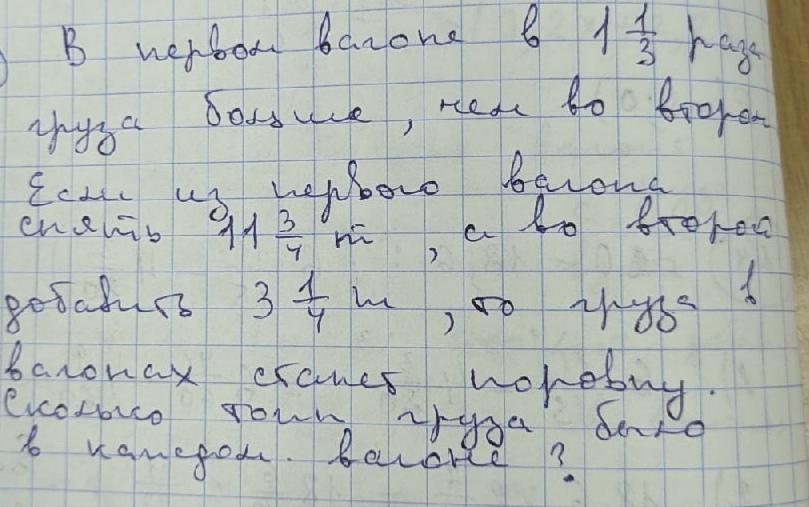 В первом вагоне в 1 1/3 раза
груза больше, чем во втором
Если из первого вагона
снять 11 3/4 т, а во второй
добавить 3 1/4 т, то груза в
вагонах станет поровну.
Сколько тонн груза было
в каждом вагоне?